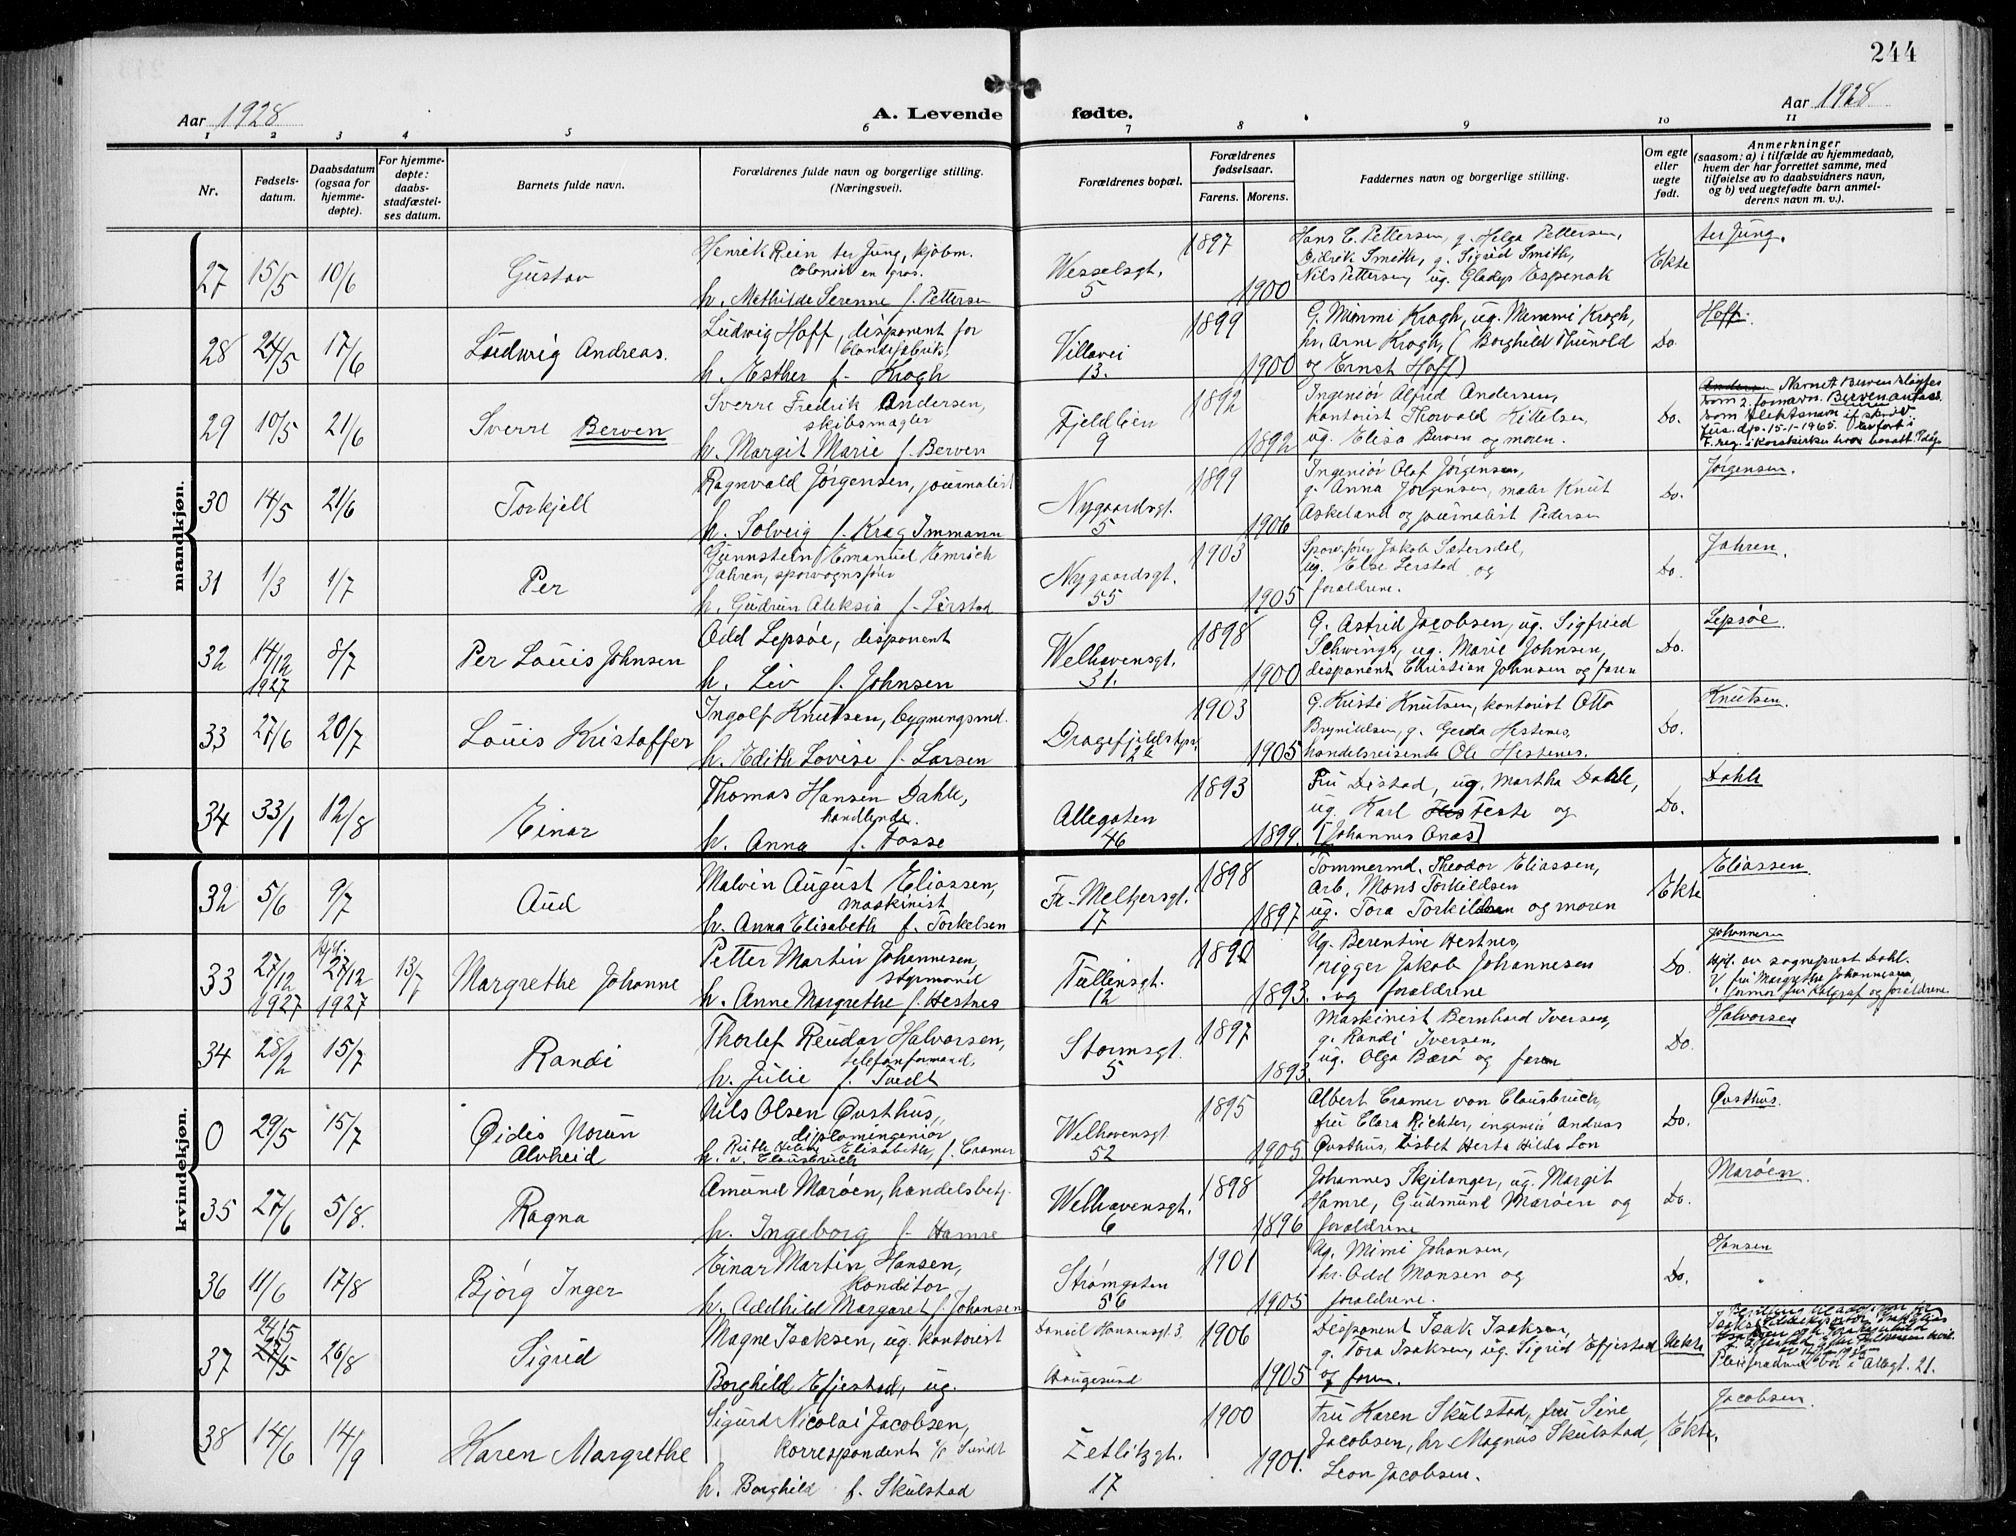 244
Aar 1928
A. Levende fødte.
Aar 1928
1 2 3 4 5 6 7 8 9 10 11
Nr.
Fødsels-
datum.
Daabsdatum
(ogsaa for
hjemme-
døpte).
For hjemme-
døpte:
daabs-
stadfæstel-
ses datum.
Barnets fulde navn.
Forældrenes fulde navn og borgerlige stilling.
(Næringsvei).
Forældrenes bopæl.
Forældrenes
fødselsaar.
Farens. Morens.
Faddernes navn og borgerlige stilling.
Om egte
eller
uegte
født.
Anmerkninger
(saasom: a) i tilfælde av hjemmedaab,
hvem der har forrettet samme, med
tilføielse av to daabsvidners navn,
og b) ved uegtefødte barn anmel-
derens navn m. v.).
mandkjøn.
27 15/5 10/6 Gustav
Henrik Rein ter Jung, kjøbm.
colonial en gros.
h. Mathilde Serenne f. Pettersen
Wesselsgt.
5
1897
1900
Hans C. Pettersen, g. Helga Pettersen,
Didrik Smith, g. Sigrid Smith,
Nils Pettersen, ug. Gladys Espenak
Ekte
ter Jung.
28 24/5 17/6 Ludwig Andreas.
Ludwig Hoff, disponent for
h. Esther f. Krogh
Villavei
13.
1899
1900
G. Mimmi Krogh, ug. Mimmi Krogh,
hr. Arne Krogh, (Borghild Thunold
og Ernst Hoff)
Do.
Hoff.
29 10/5 21/6 Sverre Berven
Sverre Fredrik Andersen,
skibsmægler
h. Margit Marie f. Berven
Fjeldlien
9
1892
1892
Ingeniør Alfred Andersen,
kontorist Thorvald Kittelsen,
ug. Elisa Berven og moren.
Do.
Andersen Navnet Berven
som 2. fornavn. Berven
som slektsnavn
15-1-1965.
30 14/5 21/6 Torkjell
Ragnvald Jørgensen, journalist
h. Solveig f. Krag Immann
Nygaardsgt.
5
1899
1906
Ingeniør Olaf Jørgensen,
g. Anna Jørgensen, maler Knut
Askeland og journalist Pedersen
Do.
Jørgensen.
31 1/3 1/7 Per
Gunnstein Emanuel Emrich
Jahren, sporvognsfører
h. Gudrun Aleksia f. Lerstad
Nygaardsgt.
55
1903
1905
Jakob Sætersdal,
ug. Else Lerstad og
forældrene.
Do.
Jahren.
32 14/12 1927 8/7 Per Louis Johnsen
Odd Lepsøe, disponent
h. Liv f. Johnsen
Welhavensgt.
31.
1898
1900
G. Astrid Jacobsen, ug. Sigfried
Schwings, ug. Marie Johnsen,
disponent Christian Johnsen og faren
Do.
Lepsøe.
33 27/6 20/7 Louis Kristoffer
Ingolf Knutsen, bygningsmd.
h. Edith Lovise f. Larsen
1903
1905
G. Kristi Knutsen, kontorist Otto
Brynildsen, g. Gerda Hestenes,
handelsreisende Ole Hestenes.
Do.
Knutsen.
34 33/1 12/8 Einar
Thomas Hansen Dahle,
handlende.
h. Anna f. Fosse
Allegaten
46
1893
1894.
Fru Distad, ug. Martha Dahle,
ug. Karl Teste og
[Johannes Onas]
Do.
Dahle
kvindekjøn.
32 5/6 9/7 Aud
Malvin August Eliassen,
maskinist
h. Anna Elisabeth f. Torkelsen
Fr. Meltzersgt.
17
1898
1897
Tømmermd. Theodor Eliassen,
Arb. Mons Torkildsen
ug. Tora Torkildsen og moren
Ekte
Eliassen
33 27/12 1927 27/12 1927 13/7 Margrethe Johanne
Petter Martin Johannesen,
styrmand
h. Anne Margrethe f. Hestnes
Tullinsgt.
12
1890
1893.
Ug. Berentine Hestnes,
rigger Jakob Johannesen
og forældrene
Do.
Johannesen
Hpl. av sogneprest Dahl.
V. fru Margrethe Johannesen
34 28/2 15/7 Randi
Thorlef Reudar Halvorsen,
telefonformand.
h. Julie f. Tvedt
Stormsgt.
5
1897
1893.
Maskinist Bernhard Iversen,
g. Randi Iversen,
ug. Olga Bærø og faren
Do.
Halvorsen
0 29/5 15/7 Øidis Norun
Alvheid
Nils Olsen Øvsthus,
diplomingeniør
h. Ruth Elisabeth, f. Cramer
v. Clausbruch
Welhavensgt.
52
1895
1905
Albert Cramer von Clausbruch,
fru Clara Richter, ingeniør Andreas
Øvsthus, Lisbet Herta Hilda Lon
Do.
Øvsthus.
35 27/6 5/8. Ragna
Amund Marøen, handelsbetj.
h. Ingeborg f. Hamre
Welhavensgt.
6
1898
1896
Johannes Skjelanger, ug. Margit
Hamre, Gudmund Marøen og
forældrene
Do.
Marøen.
36 11/6 17/8 Bjørg Inger
Einar Martin Hansen,
konditor
h. Adelhild Margaret f. Johansen
Strømgaten
56
1901
1905
Ug. Mimi Johansen,
hr. Odd Monsen og
forældrene.
Do.
Hansen
37 24/5 27/5 26/8 Sigrid
Magne Isaksen, ug. kontorist
Borghild Efjestad, ug.
Daniel Hansensgt. 3.
Haugesund
1906
1905
Disponent Isak Isaksen,
g. Tora Isaksen, ug. Sigrid Efjestad
og faren.
Uekte
bor i Allegt. 21.
38 14/6 14/9 Karen Margrethe
Sigurd Nicolai Jacobsen,
korrespondent Sundt
h. Borghild f. Skulstad
Zetlitzgt.
17
1900
1901.
Fru Karen Skulstad, fru Sine
Jacobsen, hr Magnus Skulstad,
Leon Jacobsen.
Ekte.
Jacobsen.